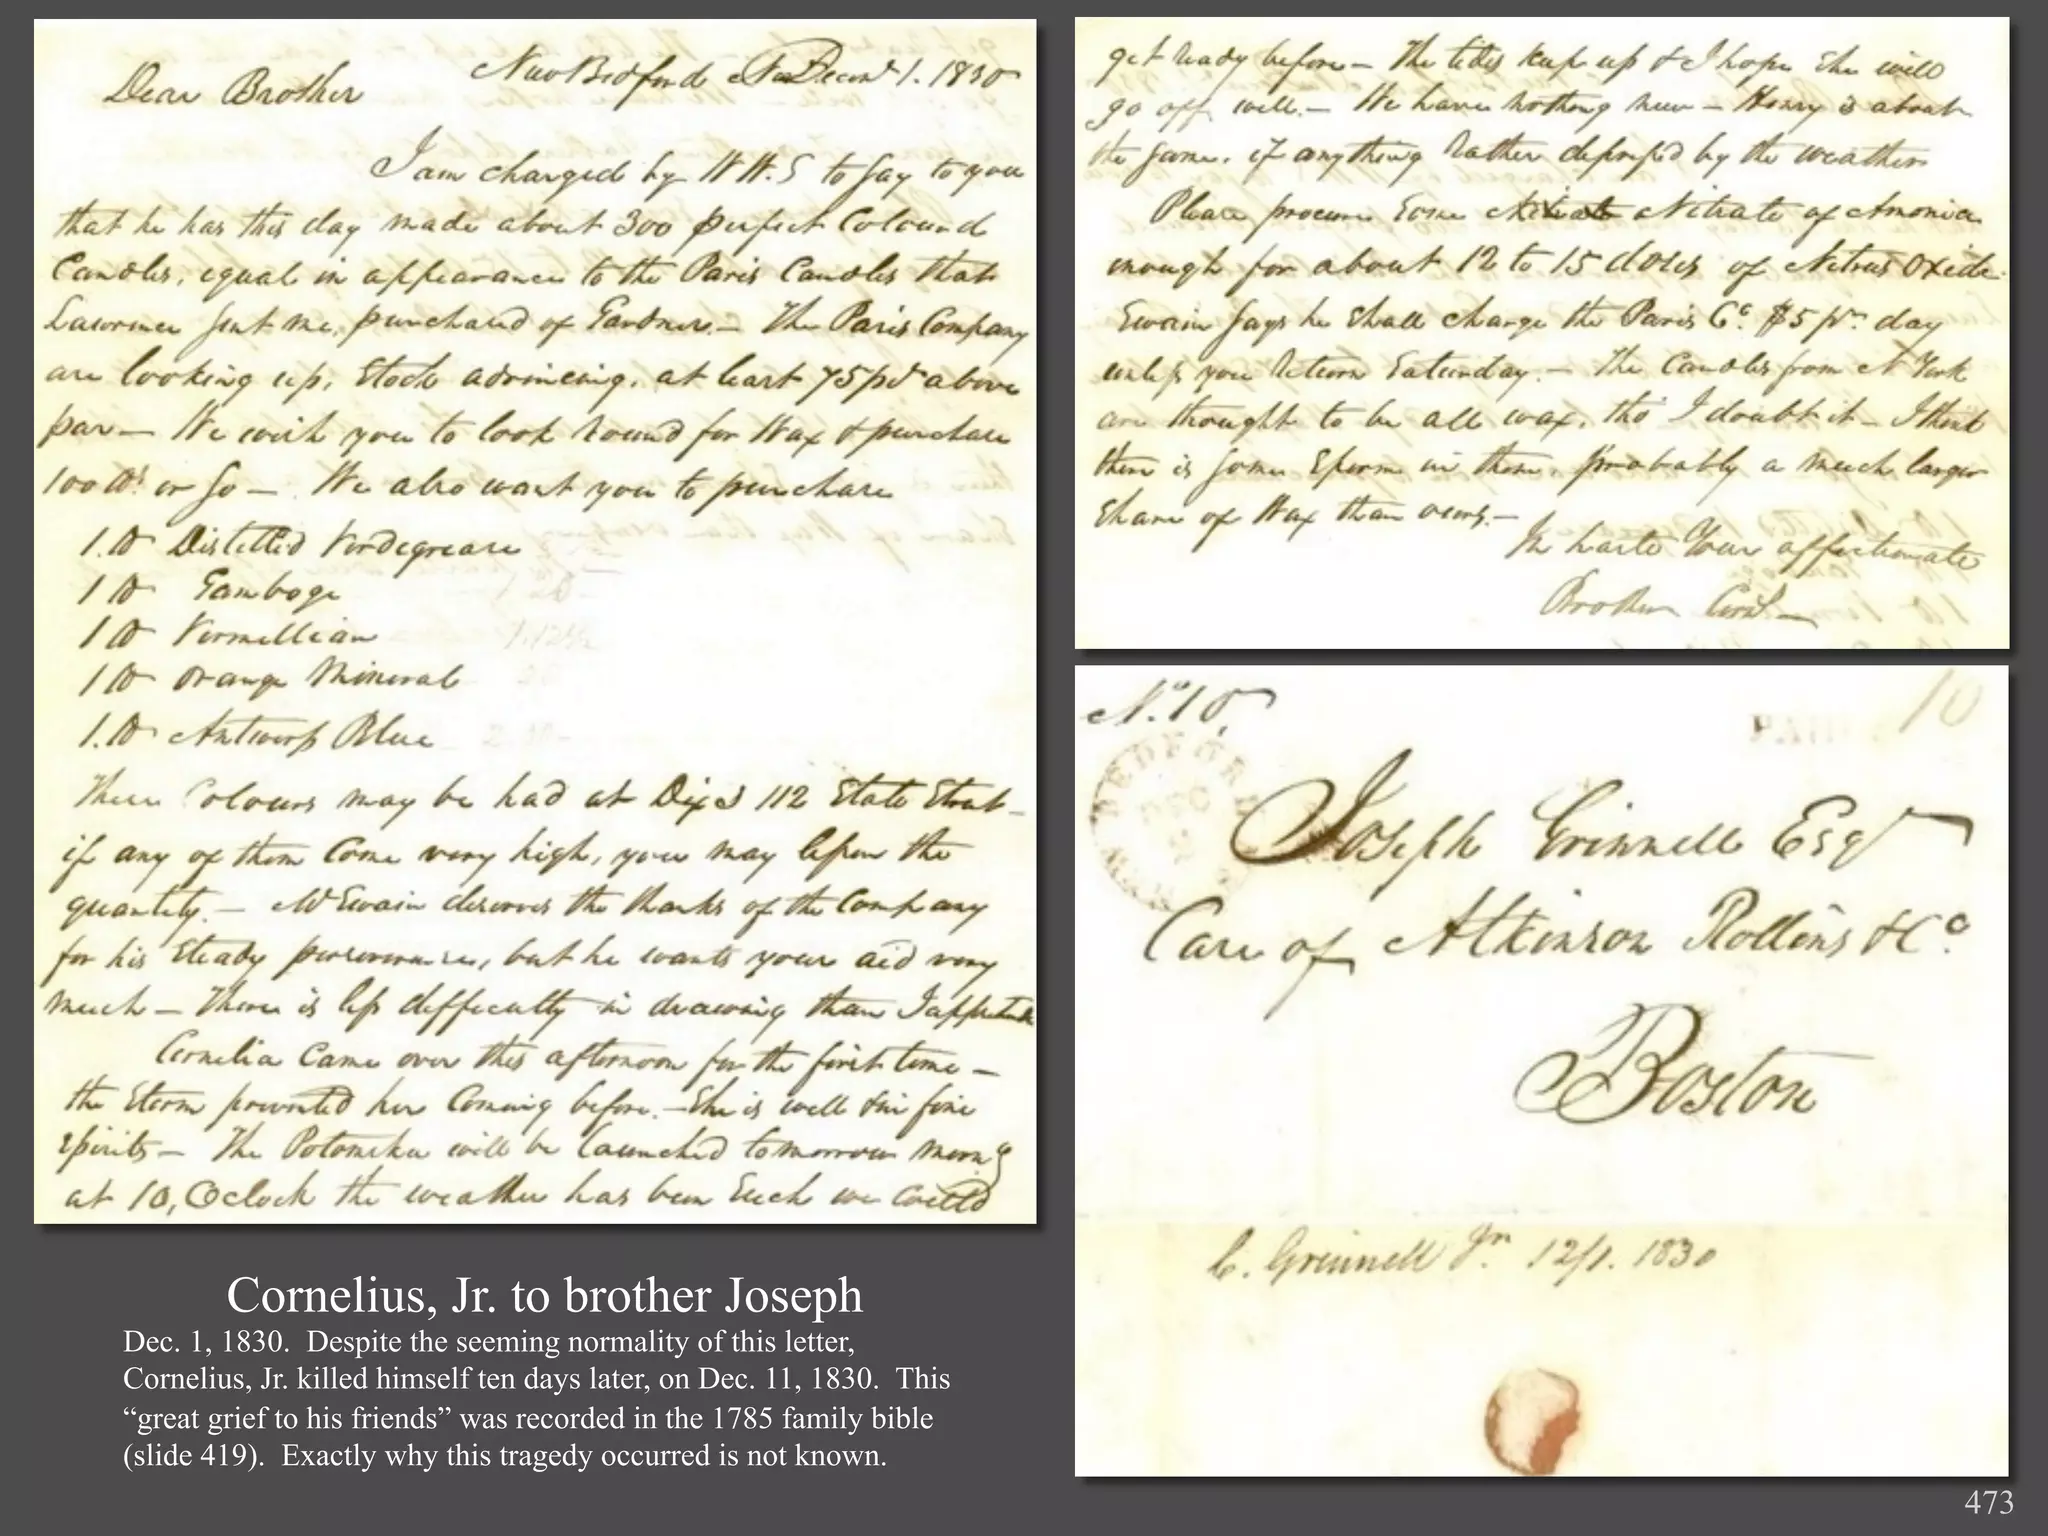 New Bedford Decem 1. 1830
Dear Brother
I am charged by W W. S to say to you
that he has this day made about 300 perfect Colourd
Candles, equal in appearance to the Paris Candles that
Lawrence sent me, purchased of Gardner. — The Paris Company
are looking up, Stock advancing, at least 75 pct above
par — We wish you to look round for Wax & purchase
100 lbs or so — We also want you to purchase
1. lb Distilled Verdegrease
1 lb Gamboge
1 lb Vermellian
1 lb Orange Mineral
1. lb Antwerp Blue
These Colours may be had at Dix's 112 State Street —
if any of them come very high, you may lessen the
quantity. — Mr Swain deserves the thanks of the Company
for his steady perseverance, but he wants your aid very
much — There is less difficulty in drawing than I
Cornelia came over this afternoon for the first time —
the Storm prevented her coming before. — She is well & in fine
spirits — The Potomska will be launched tomorrow morng
at 10, Oclock the weather has been such we could
get ready before — The tides keep up & I hope she will
go off well. — We have nothing new — Henry is about
the same, if any thing rather depressed by the weather
Please procure some Nitrate of Amonia
enough for about 12 to 15 doses of Nitrus Oxide.
Swain says he shall charge the Paris Co. $5 pr day
unless you return Saturday. — The Candles from N York
are thought to be all wax, tho' I doubt it — I think
there is some Sperm in them, probably a much larger
share of Wax than ours. —
In haste Your affectionate
Brother Corns —
No. 10.
10
BEDFORD
Joseph Grinnell Esqr
Care of Atkinson Rollins & Co.
Boston
C. Grinnell Jn. 12/1. 1830
Cornelius, Jr. to brother Joseph
Dec. 1, 1830.  Despite the seeming normality of this letter,
Cornelius, Jr. killed himself ten days later, on Dec. 11, 1830.  This
“great grief to his friends” was recorded in the 1785 family bible
(slide 419).  Exactly why this tragedy occurred is not known.
473